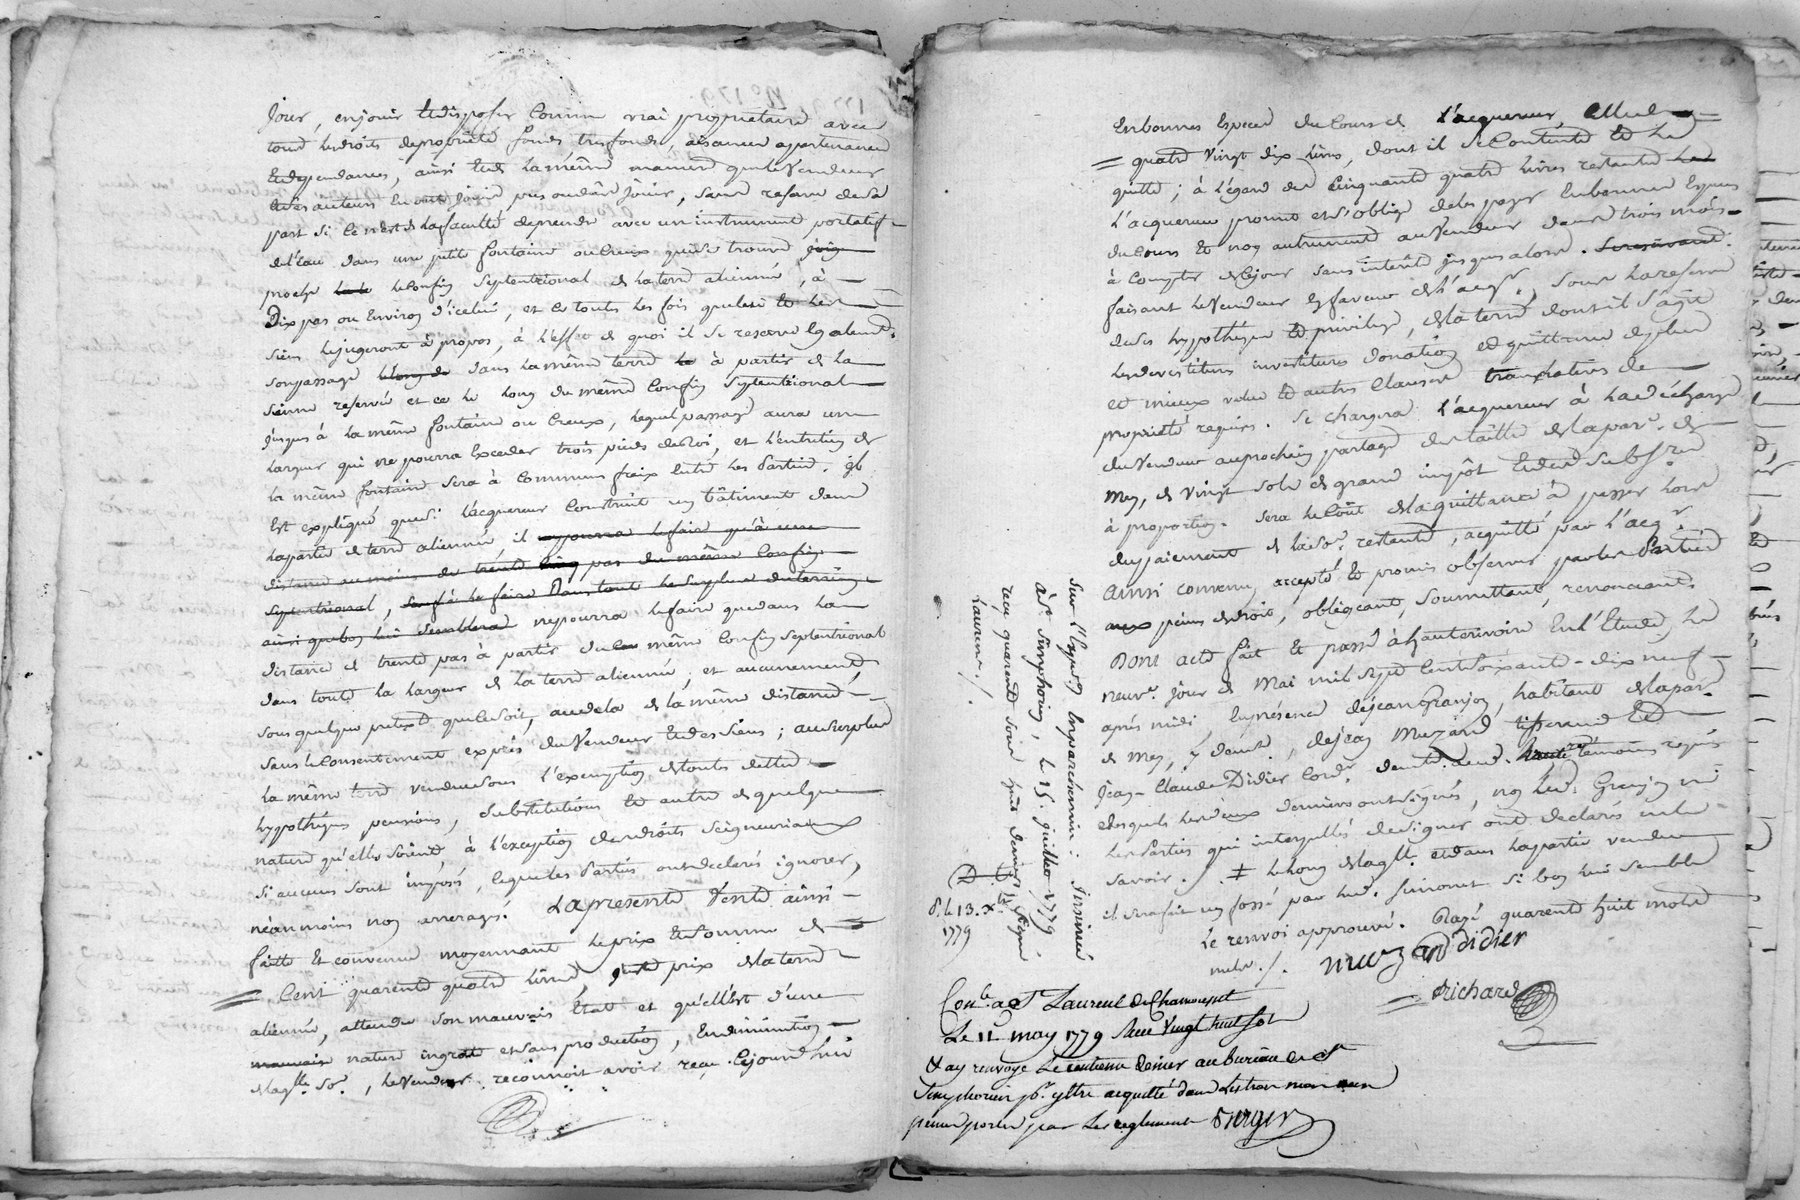 Jour, en jouir et disposer comme vrai propriétaire avec
tous les droits de propriété fonds tres fonds, aisances appartenances
et dependances, ainsi et de la même maniere que le vendeur
et ses auteurs en ont joui pu ou dû jouir, sans reserve de sa
part si ce n'est de la faculté de prendre avec un instrument portatif
de l'eau dans une petite fontaine ou creux qui se trouve
proche le confin septentrional de la terre alienné, à
Dix pas ou environ d'icelui, et ce toutes les fois que lui et les
siens le jugeront à propos, à l'effet de quoi il se reserve egalement
son passage dans la même terre à partir de la
sienne reservée et ce le long du même confin septentrional
jusques à la même fontaine ou creux, lequel passage aura une
largeur qui ne pourra exceder trois pieds de Roi, et l'entretien de
la même fontaine sera à communs fraix entre les Parties. il
est expliqué que si l'acquereur construit un bâtiment dans
la partie de terre aliennée il pourra le faire qu'à une
distance au moins de trente cinq pas du même confin
septentrional, sauf à le faire dans tout le surplus du terrein
ainsi que bon lui semblera ne pourra le faire que dans la
distance de trente pas à partir du même confin septentrional
dans toute la largeur de la terre aliennée, et aucunement,
sous quelque pretexte que ce soit, au dela de la même distance
sans le consentement exprès du vendeur et des siens; au surplus
la même terre vendue sous l'exemption de toutes dettes
hypothéques pensions, substitutions et autre de quelque
nature qu'elles soient, à l'exception des droits seigneuriaux
si aucuns sont imposés, lesquels les Parties ont declarés ignorer,
néanmoins non arreragés. La presente Vente ainsi
faitte et convenue moyennant le prix et somme de
Cent quarente quatre livres, prix de la terre
aliennée, attendu son mauvais Etat et qu'elle est d'une
mauvaise nature ingrate et sans production, en diminution
de laq.lle so.e, le Vendeur reconnoit avoir reçu cejourd'hui
en bonnes especes du cours de l'acquereur, celle de
quatre vingt dix livres, dont il se contente et le
quitte; à l'égard des cinquante quatre livres restantes
l'acquereur promet et s'oblige de les payer en bonnes especes
du cours et non autrement au vendeur dans trois mois
à compter de ce jour sans interêt jusques alors.
faisant le vendeur en faveur de l'acq.r, sous la reserve
de ses hypotheques et privilege, de la terre dont il s'agit
les devestitures investitures donation et quittance de plus
et mieux value et autres clauses translatives de
propriété requises. Se chargera l'acquereur à la décharge
du vendeur au prochain partage des tailles de la par.e de
Mey, de vingt sols de grand impôt et des subs.res
à proportion. sera le coût de la quittance à passer lors
du paiement de la so.e restante, acquitté par l'acq.r
Ainsi convenu accepté et promis observer par les Parties
aux peines de droit, obligeant, soumettant, renonceant.
Dont acte fait et passé à hauterivoire en l'Etude, le
neuv.e jour de Mai mil sept cent soixante-dix neuf
après midi en présence de jean Granjon, habitant de la par.
de Mey, y dem.t, de jean Muzard tisserand et
jean-Claude Didier cord.r dem.t aud. temoins requis
desquels les deux derniers ont signés, non led. Granjon ni
les Parties qui interpellés de signer ont declarés ne le
savoir./. ‡ le long de laq.lle et dans la partie vendue
il sera fait un fossé par led. Simonet si bon lui semble
Le renvoi approuvé. Rayé quarente huit mots
nuls./. muzard didier
Richard
Sur l'Exped.on en parchemin: Insinué
à S.t Simphorien, le 15. juillet 1779
reçu quarente sous huit deniers signé
Laurens./.
D.
d. le 13. X.bre
1779
Con.lé a S.t Laurent de Chamousset
Le 11 may 1779 Reçu vingt huit sols
& ay renvoyé Le centieme denier au bureau de S.t
Simphorien
peines portées par les reglements